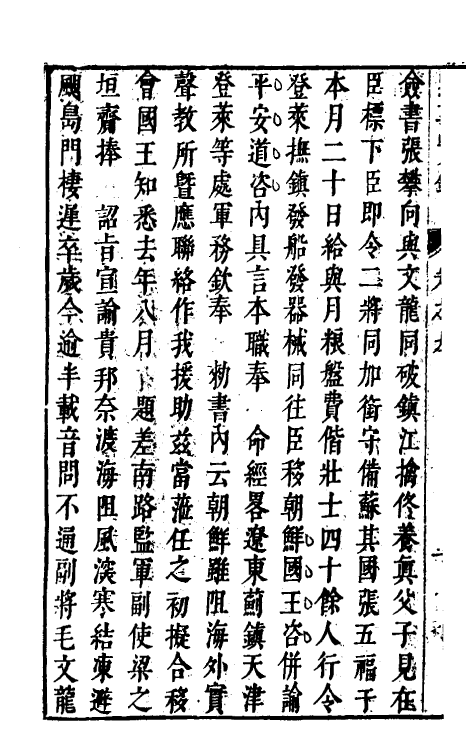 僉書張攀向與文龍同破鎮江擒佟養真父子見在
臣標下臣即令二將同加銜守備蘇其國張五福于
本月二十日給與月粮盤費偕壯士四十餘人行令
登萊撫鎮發船發器械同往臣移朝鮮國王咨併諭
平安道咨內具言本職奉　命經畧遼東薊鎮天津
登萊等處軍務欽奉　勑書內云朝鮮雖阻海外實
聲教所暨應聯絡作我援助兹當蒞任之初擬合移
會國王知悉去年八月　題差南路監軍副使梁之
垣齎捧　詔旨宣諭貴邦奈渡海阻風深寒結凍避
颶島門棲遲卒歲今逾半載音問不通副將毛文龍